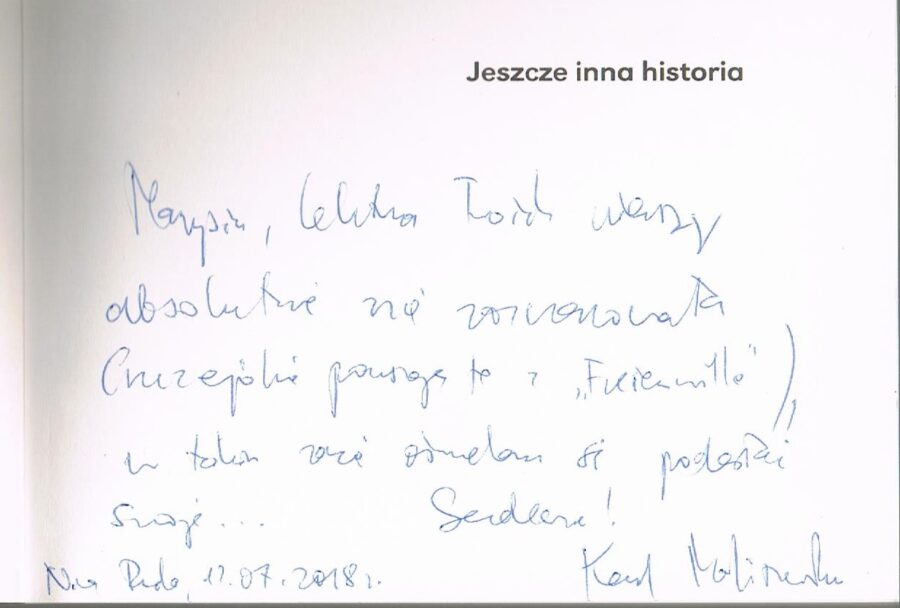 Jeszcze inna historia
Marysiu, lektura Twoich wierszy
absolutnie nie rozczarowała
(najbardziej te z „Freienwille”),
w takim razie ośmielam się podesłać
swoje... Serdeczne!
Nowa Ruda, 12.07.2018 r. Karol Maliszewski